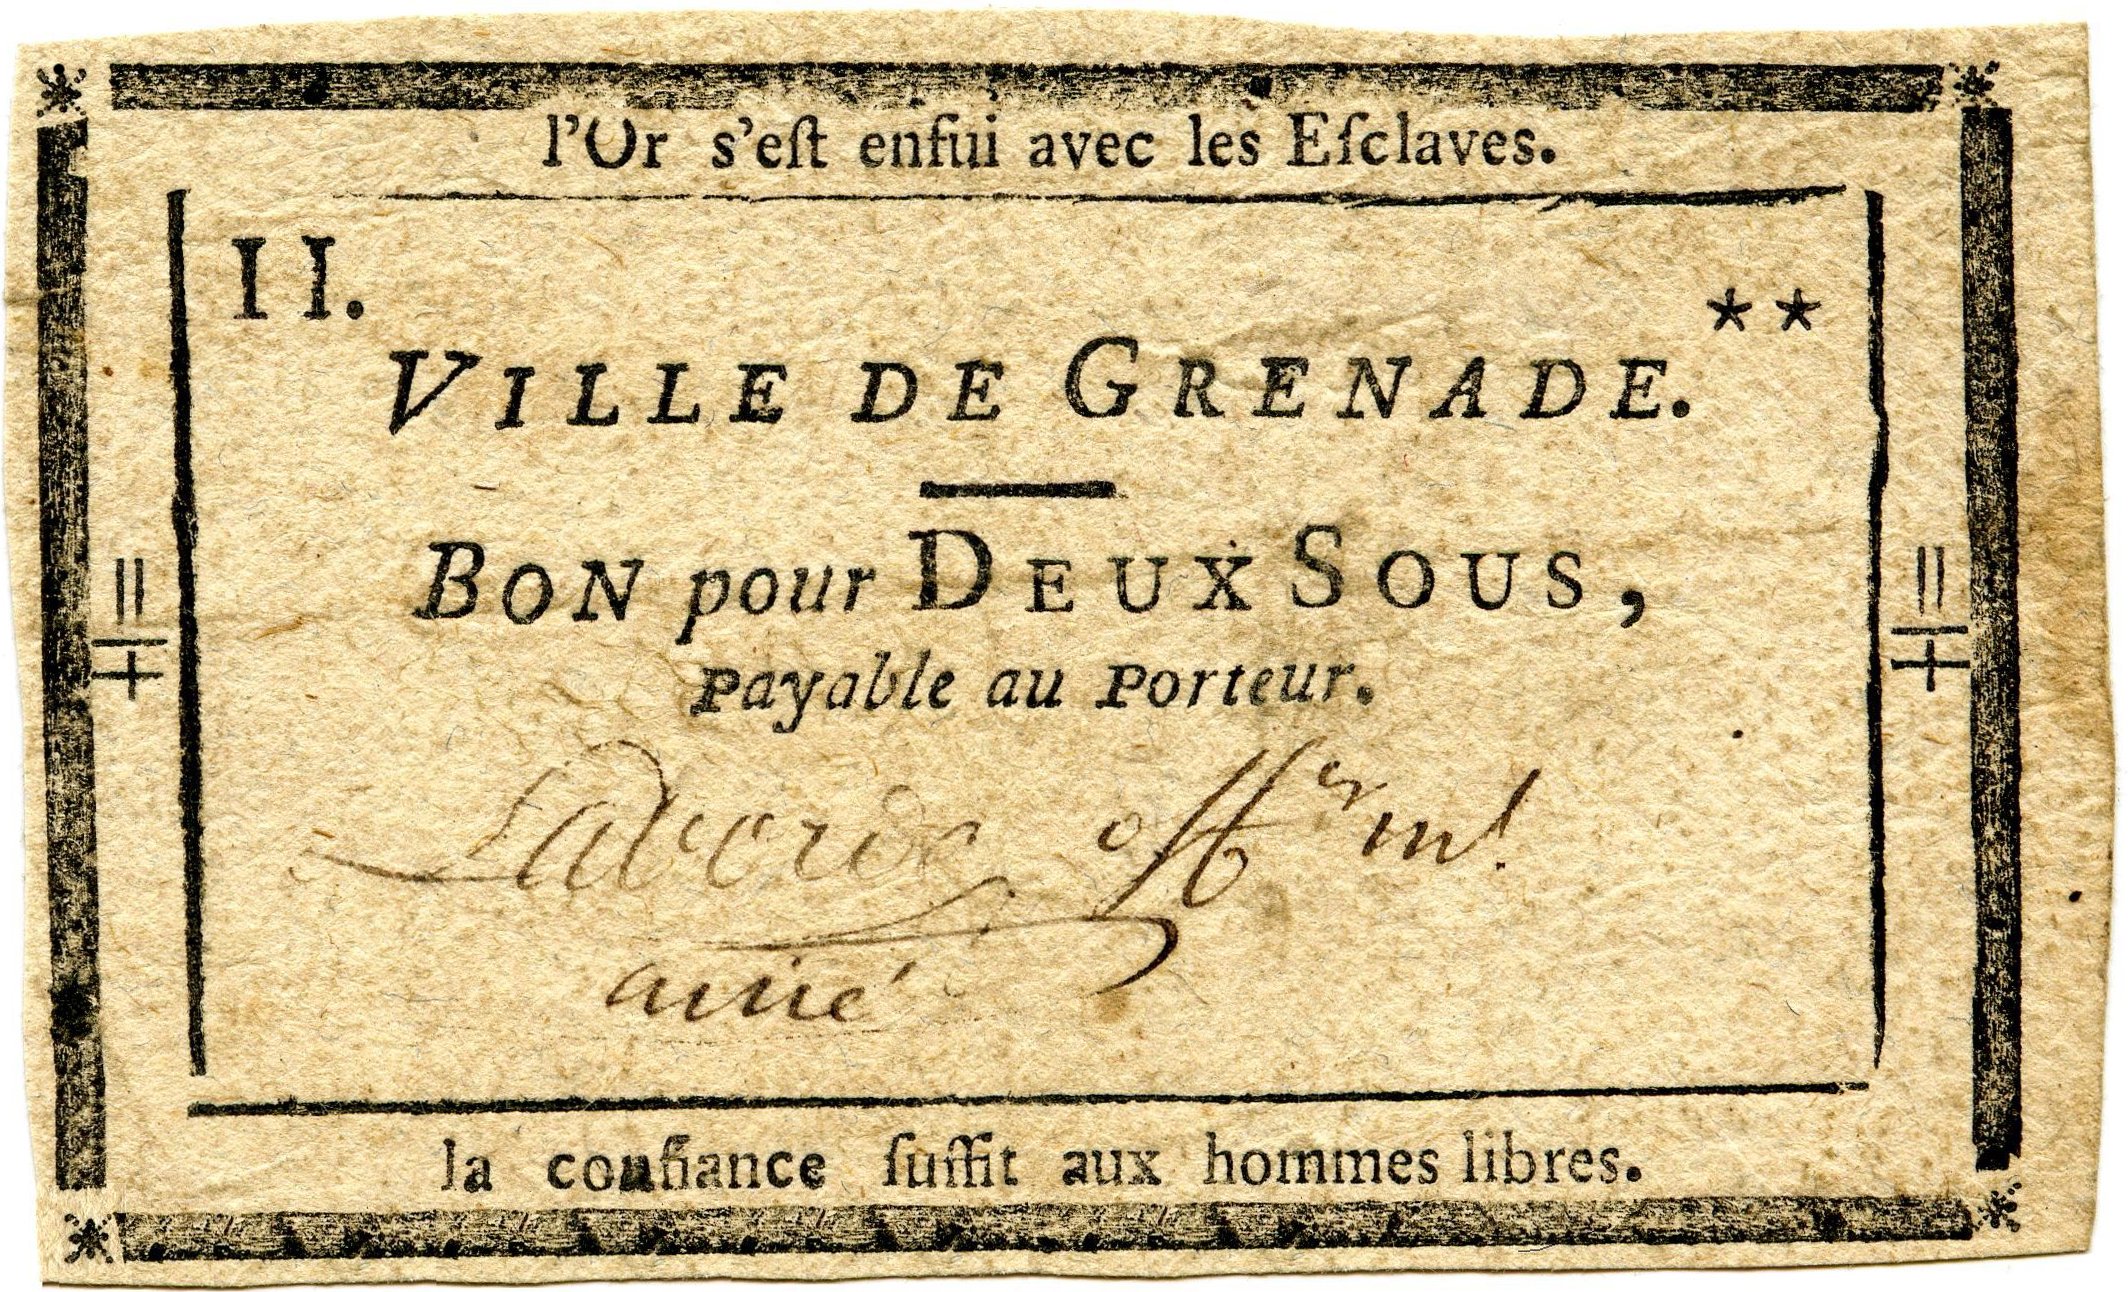 l'Or s'eſt enfui avec les Eſclaves.
II.
**
VILLE DE GRENADE.
BON pour DEUX SOUS,
Payable au Porteur.
Laborde offer ml
ainé
la confiance ſuffit aux hommes libres.